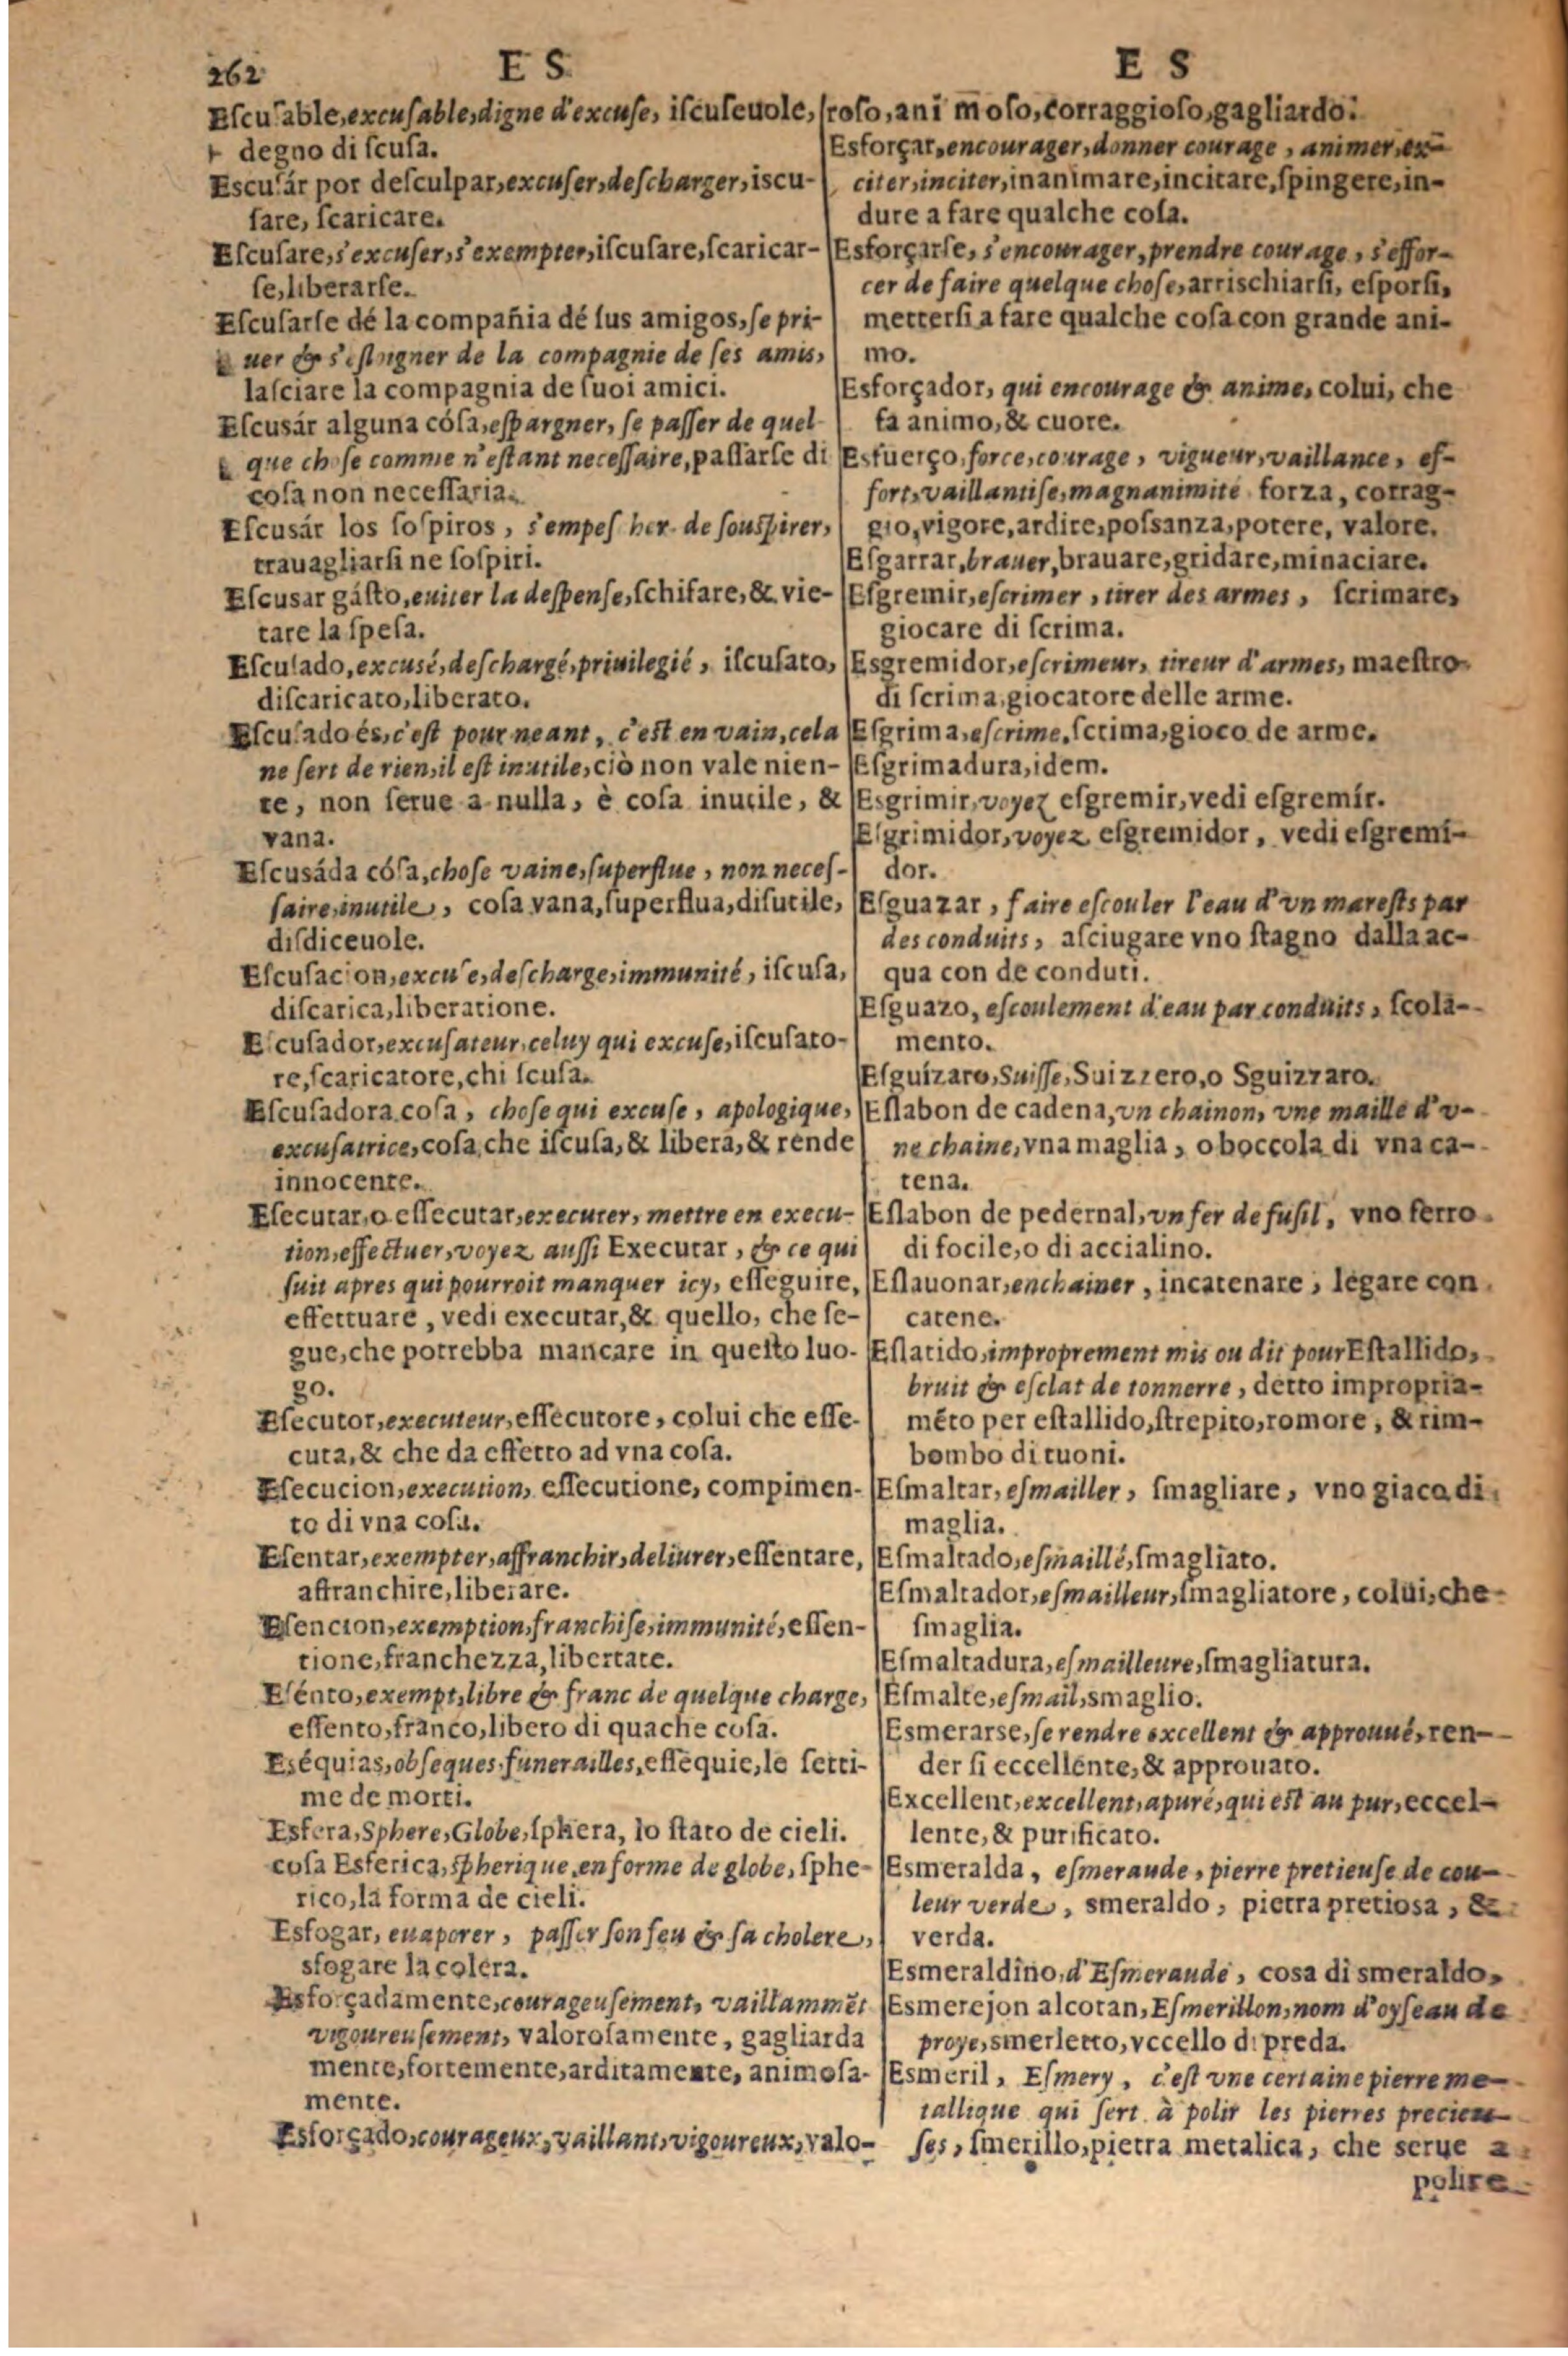 262 E S E S
Eſcuſable, excuſable, digne d'excuſe, iſcuſeuole,
degno di ſcuſa.
Escuſár por deſculpar, excuſer, deſcharger, iscu-
ſare, ſcaricare.
Eſcuſare, s'excuſer, s'exempter, iſcuſare, ſcaricar-
ſe, liberarſe.
Eſcuſarſe dé la compañia dé ſus amigos, ſe pri-
uer & s'eſloigner de la compagnie de ſes amis,
laſciare la compagnia de ſuoi amici.
Eſcusár alguna cóſa, eſpargner, ſe paſſer de quel
que choſe comme n'eſtant neceſſaire, paſſarſe di
coſa non neceſſaria.
Eſcusár los ſoſpiros, s'empeſcher de ſouſpirer,
trauagliarſi ne ſoſpiri.
Eſcusar gáſto, euiter la deſpenſe, ſchifare, & vie-
tare la ſpeſa.
Eſcuſado, excusé, deſchargé, priuilegié, iſcuſato,
diſcaricato, liberato.
Eſcuſado és, c'eſt pour neant, c'eſt en vain, cela
ne ſert de rien, il eſt inutile, ciò non vale nien-
te, non ſerue a nulla, è coſa inutile, &
vana.
Eſcusáda cóſa, choſe vaine, ſuperflue, non neceſ-
ſaire, inutile, coſa vana, ſuperflua, diſutile,
diſdiceuole.
Eſcuſacion, excuſe, deſcharge, immunité, iſcuſa,
diſcarica, liberatione.
Eſcuſador, excuſateur, celuy qui excuſe, iſcuſato-
re, ſcaricatore, chi ſcuſa.
Eſcuſadora coſa, choſe qui excuſe, apologique,
excuſatrice, coſa che iſcuſa, & libera, & rende
innocente.
Eſecutar, o eſſecutar, executer, mettre en execu-
tion, effectuer, voyez auſſi Executar, & ce qui
ſuit apres qui pourroit manquer icy, eſſeguire,
effettuare, vedi executar, & quello, che ſe-
gue, che potrebba mancare in queſto luo-
go.
Eſecutor, executeur, eſſecutore, colui che eſſe-
cuta, & che da effetto ad vna coſa.
Eſecucion, execution, eſſecutione, compimen-
to di vna coſa.
Eſentar, exempter, affranchir, deliurer, eſſentare,
affranchire, liberare.
Eſencion, exemption, franchiſe, immunité, eſſen-
tione, franchezza, libertate.
Eſénto, exempt, libre & franc de quelque charge,
eſſento, franco, libero di quache coſa.
Eséquias, obſeques, funerailles, eſſequie, le ſetti-
me de morti.
Esfera, Sphere, Globe, ſphera, lo ſtato de cieli.
coſa Esferica, ſpherique, en forme de globe, ſphe-
rico, la forma de cieli.
Esfogar, euaporer, paſſer ſon feu & ſa cholere,
sfogare la colera.
Esforçadamente, courageuſement, vaillammẽt
vigoureuſement, valoroſamente, gagliarda
mente, fortemente, arditamente, animoſa-
mente.
Esforçado, courageux, vaillant, vigoureux, valo-
roſo, animoſo, corraggioſo, gagliardo.
Esforçar, encourager, donner courage, animer, ex-
citer, inciter, inanimare, incitare, ſpingere, in-
dure a fare qualche coſa.
Esforçarſe, s'encourager, prendre courage, s'effor-
cer de faire quelque choſe, arriſchiarſi, eſporſi,
metterſi a fare qualche coſa con grande ani-
mo.
Esforçador, qui encourage & anime, colui, che
fa animo, & cuore.
Esfuerço, force, courage, vigueur, vaillance, ef-
fort, vaillantiſe, magnanimité forza, corrag-
gio, vigore, ardire, poſsanza, potere, valore.
Eſgarrar, brauer, brauare, gridare, minaciare.
Eſgremir, eſcrimer, tirer des armes, ſcrimare,
giocare di ſcrima.
Esgremidor, eſcrimeur, tireur d'armes, maeſtro
di ſcrima, giocatore delle arme.
Eſgrima, eſcrime, ſcrima, gioco de arme.
Eſgrimadura, idem.
Esgrimir, voyez eſgremir, vedi eſgremír.
Eſgrimidor, voyez eſgremidor, vedi eſgremí-
dor.
Eſguazar, faire eſcouler l'eau d'vn mareſts par
des conduits, aſciugare vno ſtagno dalla ac-
qua con de conduti.
Eſguazo, eſcoulement d'eau par conduits, ſcola-
mento.
Eſguízaro, Suiſſe, Suizzero, o Sguizzaro.
Eſlabon de cadena, vn chainon, vne maille d'v-
ne chaine, vna maglia, o boccola di vna ca-
tena.
Eſlabon de pedernal, vn fer de fuſil, vno ferro
di focile, o di accialino.
Eſlauonar, enchainer, incatenare, legare con
catene.
Eſlatido, improprement mis ou dit pour Eſtallido,
bruit & eſclat de tonnerre, detto impropria-
mẽto per eſtallido, ſtrepito, romore, & rim-
bombo di tuoni.
Eſmaltar, eſmailler, ſmagliare, vno giaco di
maglia.
Eſmaltado, eſmaillé, ſmagliato.
Eſmaltador, eſmailleur, ſmagliatore, colui, che
ſmaglia.
Eſmaltadura, eſmailleure, ſmagliatura.
Eſmalte, eſmail, smaglio.
Esmerarse, ſe rendre excellent & approuué, ren-
der ſi eccellente, & approuato.
Excellent, excellent, apuré, qui eſt au pur, eccel-
lente, & purificato.
Esmeralda, eſmeraude, pierre pretieuſe de cou-
leur verde, smeraldo, pietra pretiosa, &
verda.
Esmeraldino, d'Eſmeraude, cosa di smeraldo.
Esmerejon alcotan, Eſmerillon, nom d'oyſeau de
proye, smerletto, vccello di preda.
Esmeril, Eſmery, c'eſt vne certaine pierre me-
tallique qui ſert à polir les pierres precieu-
ſes, ſmerillo, pietra metalica, che serue a
polire